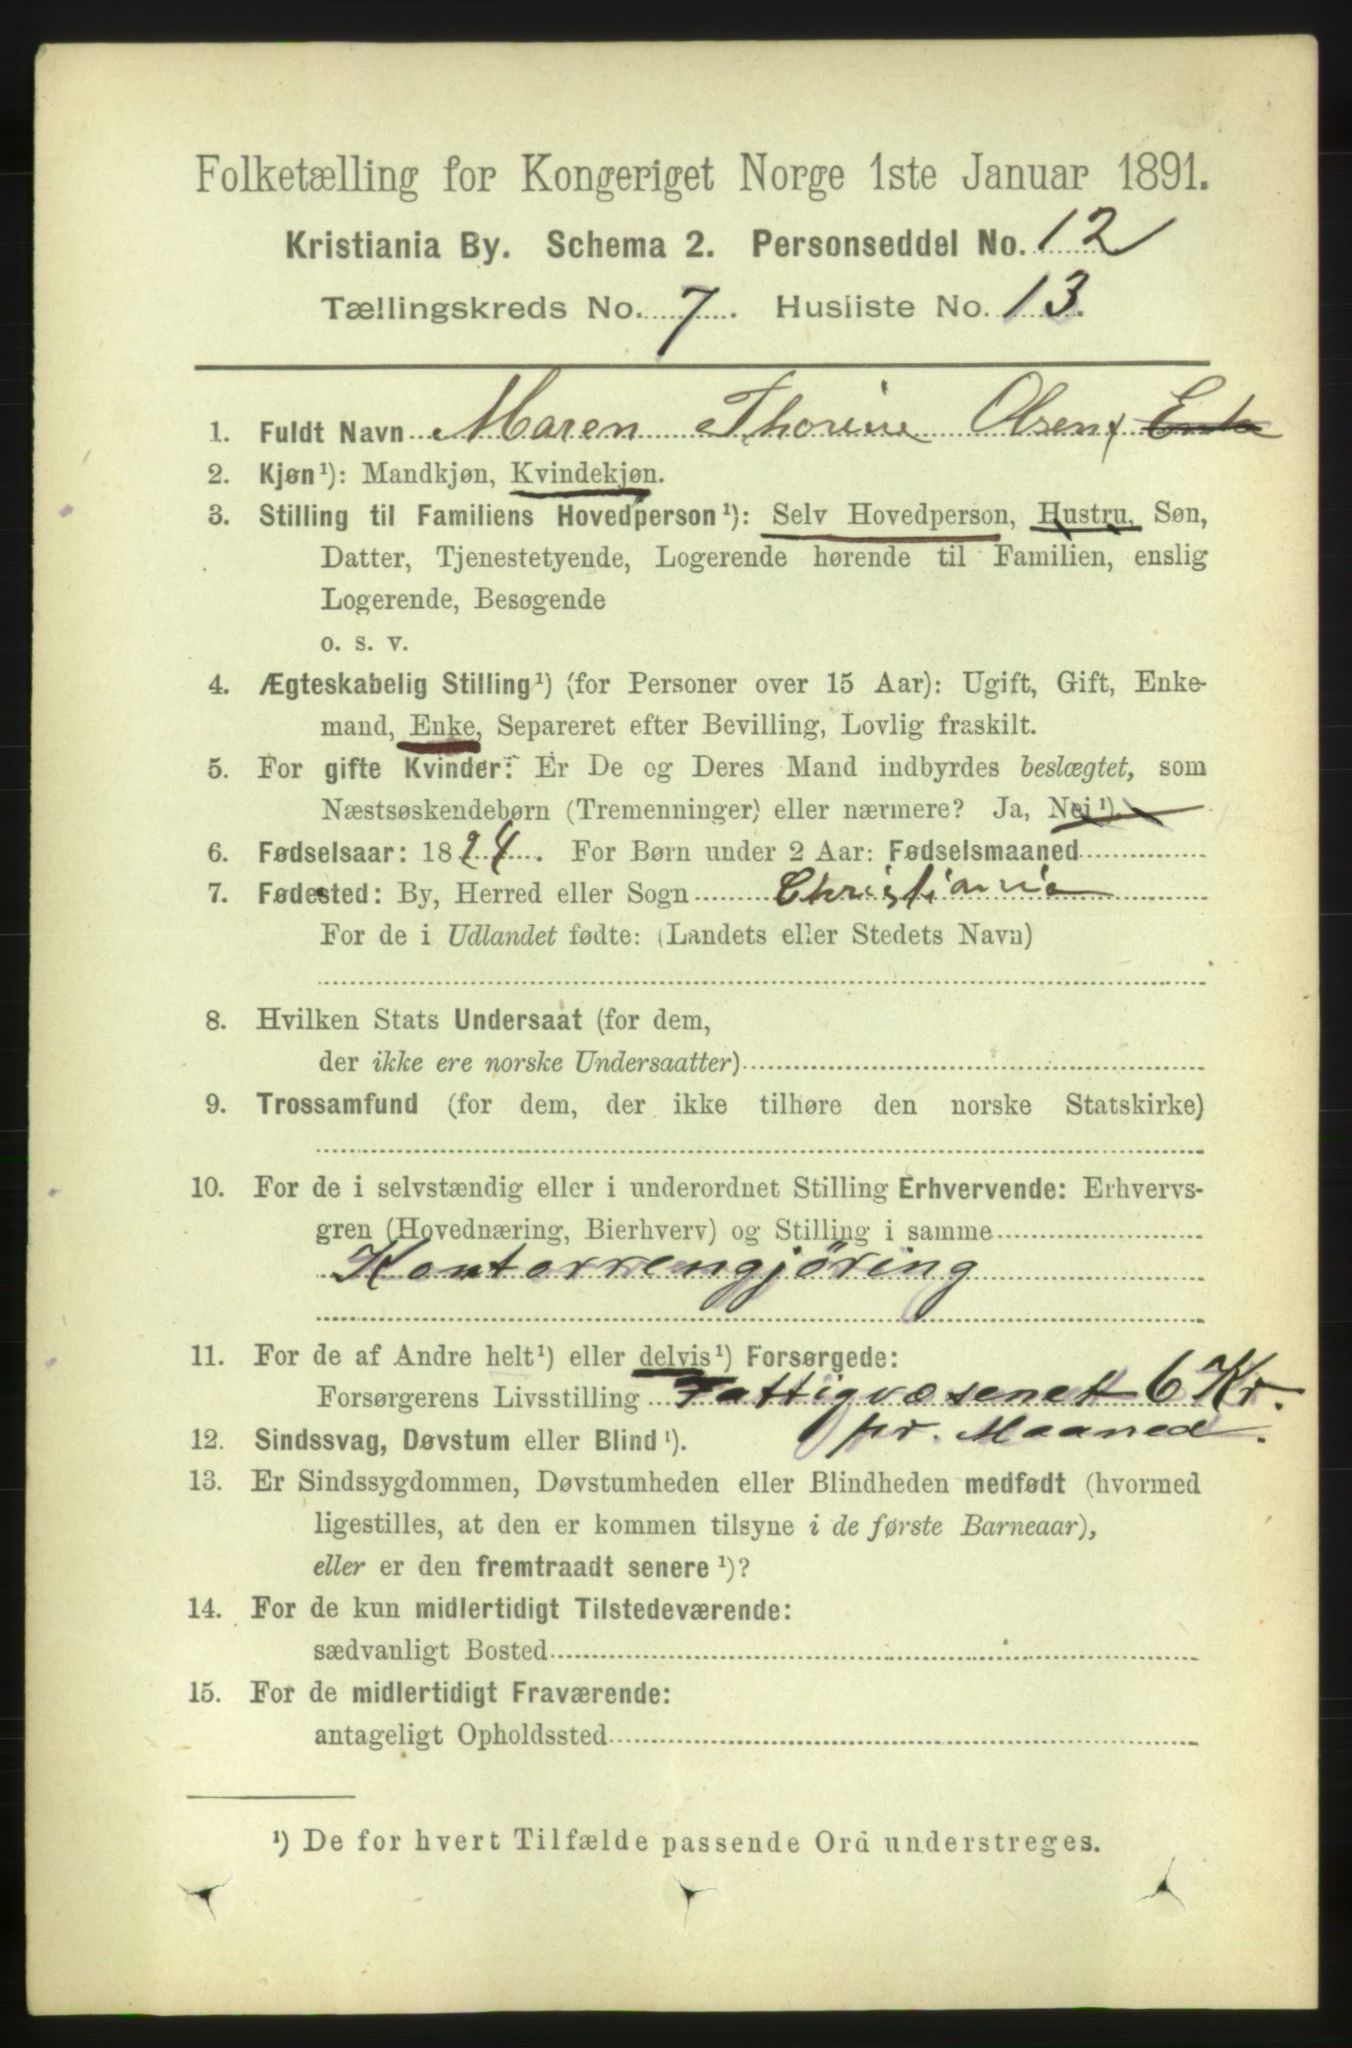 Folketælling for Kongeriget Norge 1ste Januar 1891.
Kristiania By. Schema 2. Personseddel No. 12
Tællingskreds No. 7. Husliste No. 13.
1. Fuldt Navn Maren Thorine Olsen, Enke
2. Kjøn¹): Mandkjøn, Kvindekjøn.
3. Stilling til Familiens Hovedperson¹): Selv Hovedperson, Hustru, Søn,
Datter, Tjenestetyende, Logerende hørende til Familien, enslig
Logerende, Besøgende
o. s. v.
4. Ægteskabelig Stilling¹) (for Personer over 15 Aar): Ugift, Gift, Enke-
mand, Enke, Separeret efter Bevilling, Lovlig fraskilt.
5. For gifte Kvinder: Er De og Deres Mand indbyrdes beslægtet, som
Næstsøskendebørn (Tremenninger) eller nærmere? Ja, Nei¹).
6. Fødselsaar: 1824. For Børn under 2 Aar: Fødselsmaaned
7. Fødested: By, Herred eller Sogn Christiania
For de i Udlandet fødte: (Landets eller Stedets Navn)
8. Hvilken Stats Undersaat (for dem,
der ikke ere norske Undersaatter)
9. Trossamfund (for dem, der ikke tilhøre den norske Statskirke)
10. For de i selvstændig eller i underordnet Stilling Erhvervende: Erhvervs-
gren (Hovednæring, Bierhverv) og Stilling i samme
Kontorrengjøring
11. For de af Andre helt¹) eller delvis¹) Forsørgede:
Forsørgerens Livsstilling Fattigvæsenet 6 Kr.
pr. Maaned.
12. Sindssvag, Døvstum eller Blind¹).
13. Er Sindssygdommen, Døvstumheden eller Blindheden medfødt (hvormed
ligestilles, at den er kommen tilsyne i de første Barneaar),
eller er den fremtraadt senere¹)?
14. For de kun midlertidigt Tilstedeværende:
sædvanligt Bosted
15. For de midlertidigt Fraværende:
antageligt Opholdssted
¹) De for hvert Tilfælde passende Ord understreges.